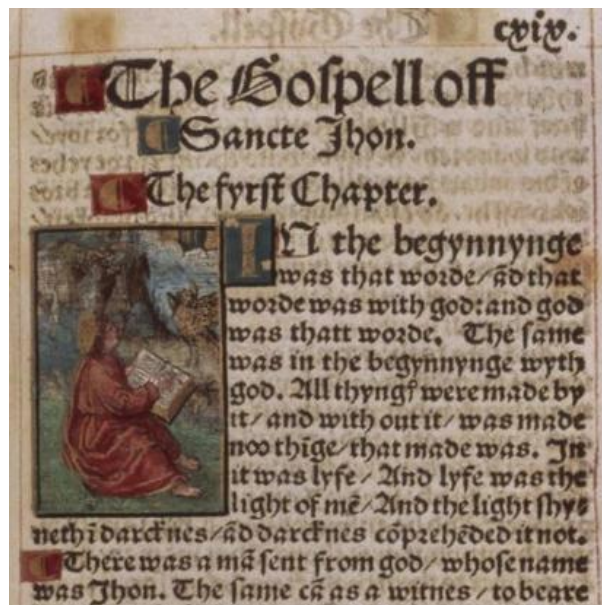 cxix.
¶The Goſpell off
¶Sancte Jhon.
¶The fyrſt Chapter.
IN the begynnynge
was that worde/ ād that
worde was with god: and god
was thatt worde. The ſame
was in the begynnynge wyth
god. All thyngꝭ were made by
it/ and with out it/ was made
noo thīge/ that made was. In
it was lyfe/ And lyfe was the
light of mē/ And the light ſhy⸗
neth ī darcknes/ ād darcknes cōprehēded it not.
¶There was a mā ſent from god/ whoſe name
was Jhon. The ſame cā as a witnes/ to beare